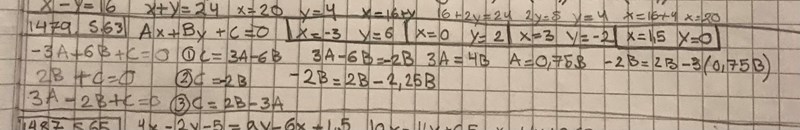 x-y=16 x+y=24 x=20 y=4 x=16+y 16+2y=24 2y=8 y=4 x=16+4 x=20
1479 563 Ax+By+C=0 x=-3 y=6 x=0 y=2 x=3 y=-2 x=1,5 y=0
-3A+6B+C=0 ①C=3A-6B 3A-6B=-2B 3A=4B A=0,75B -2B=2B-3(0,75B)
2B+C=0 ②C=-2B -2B=2B-2,25B
3A-2B+C=0 ③C=2B-3A
1487 565 4x-2y-5=